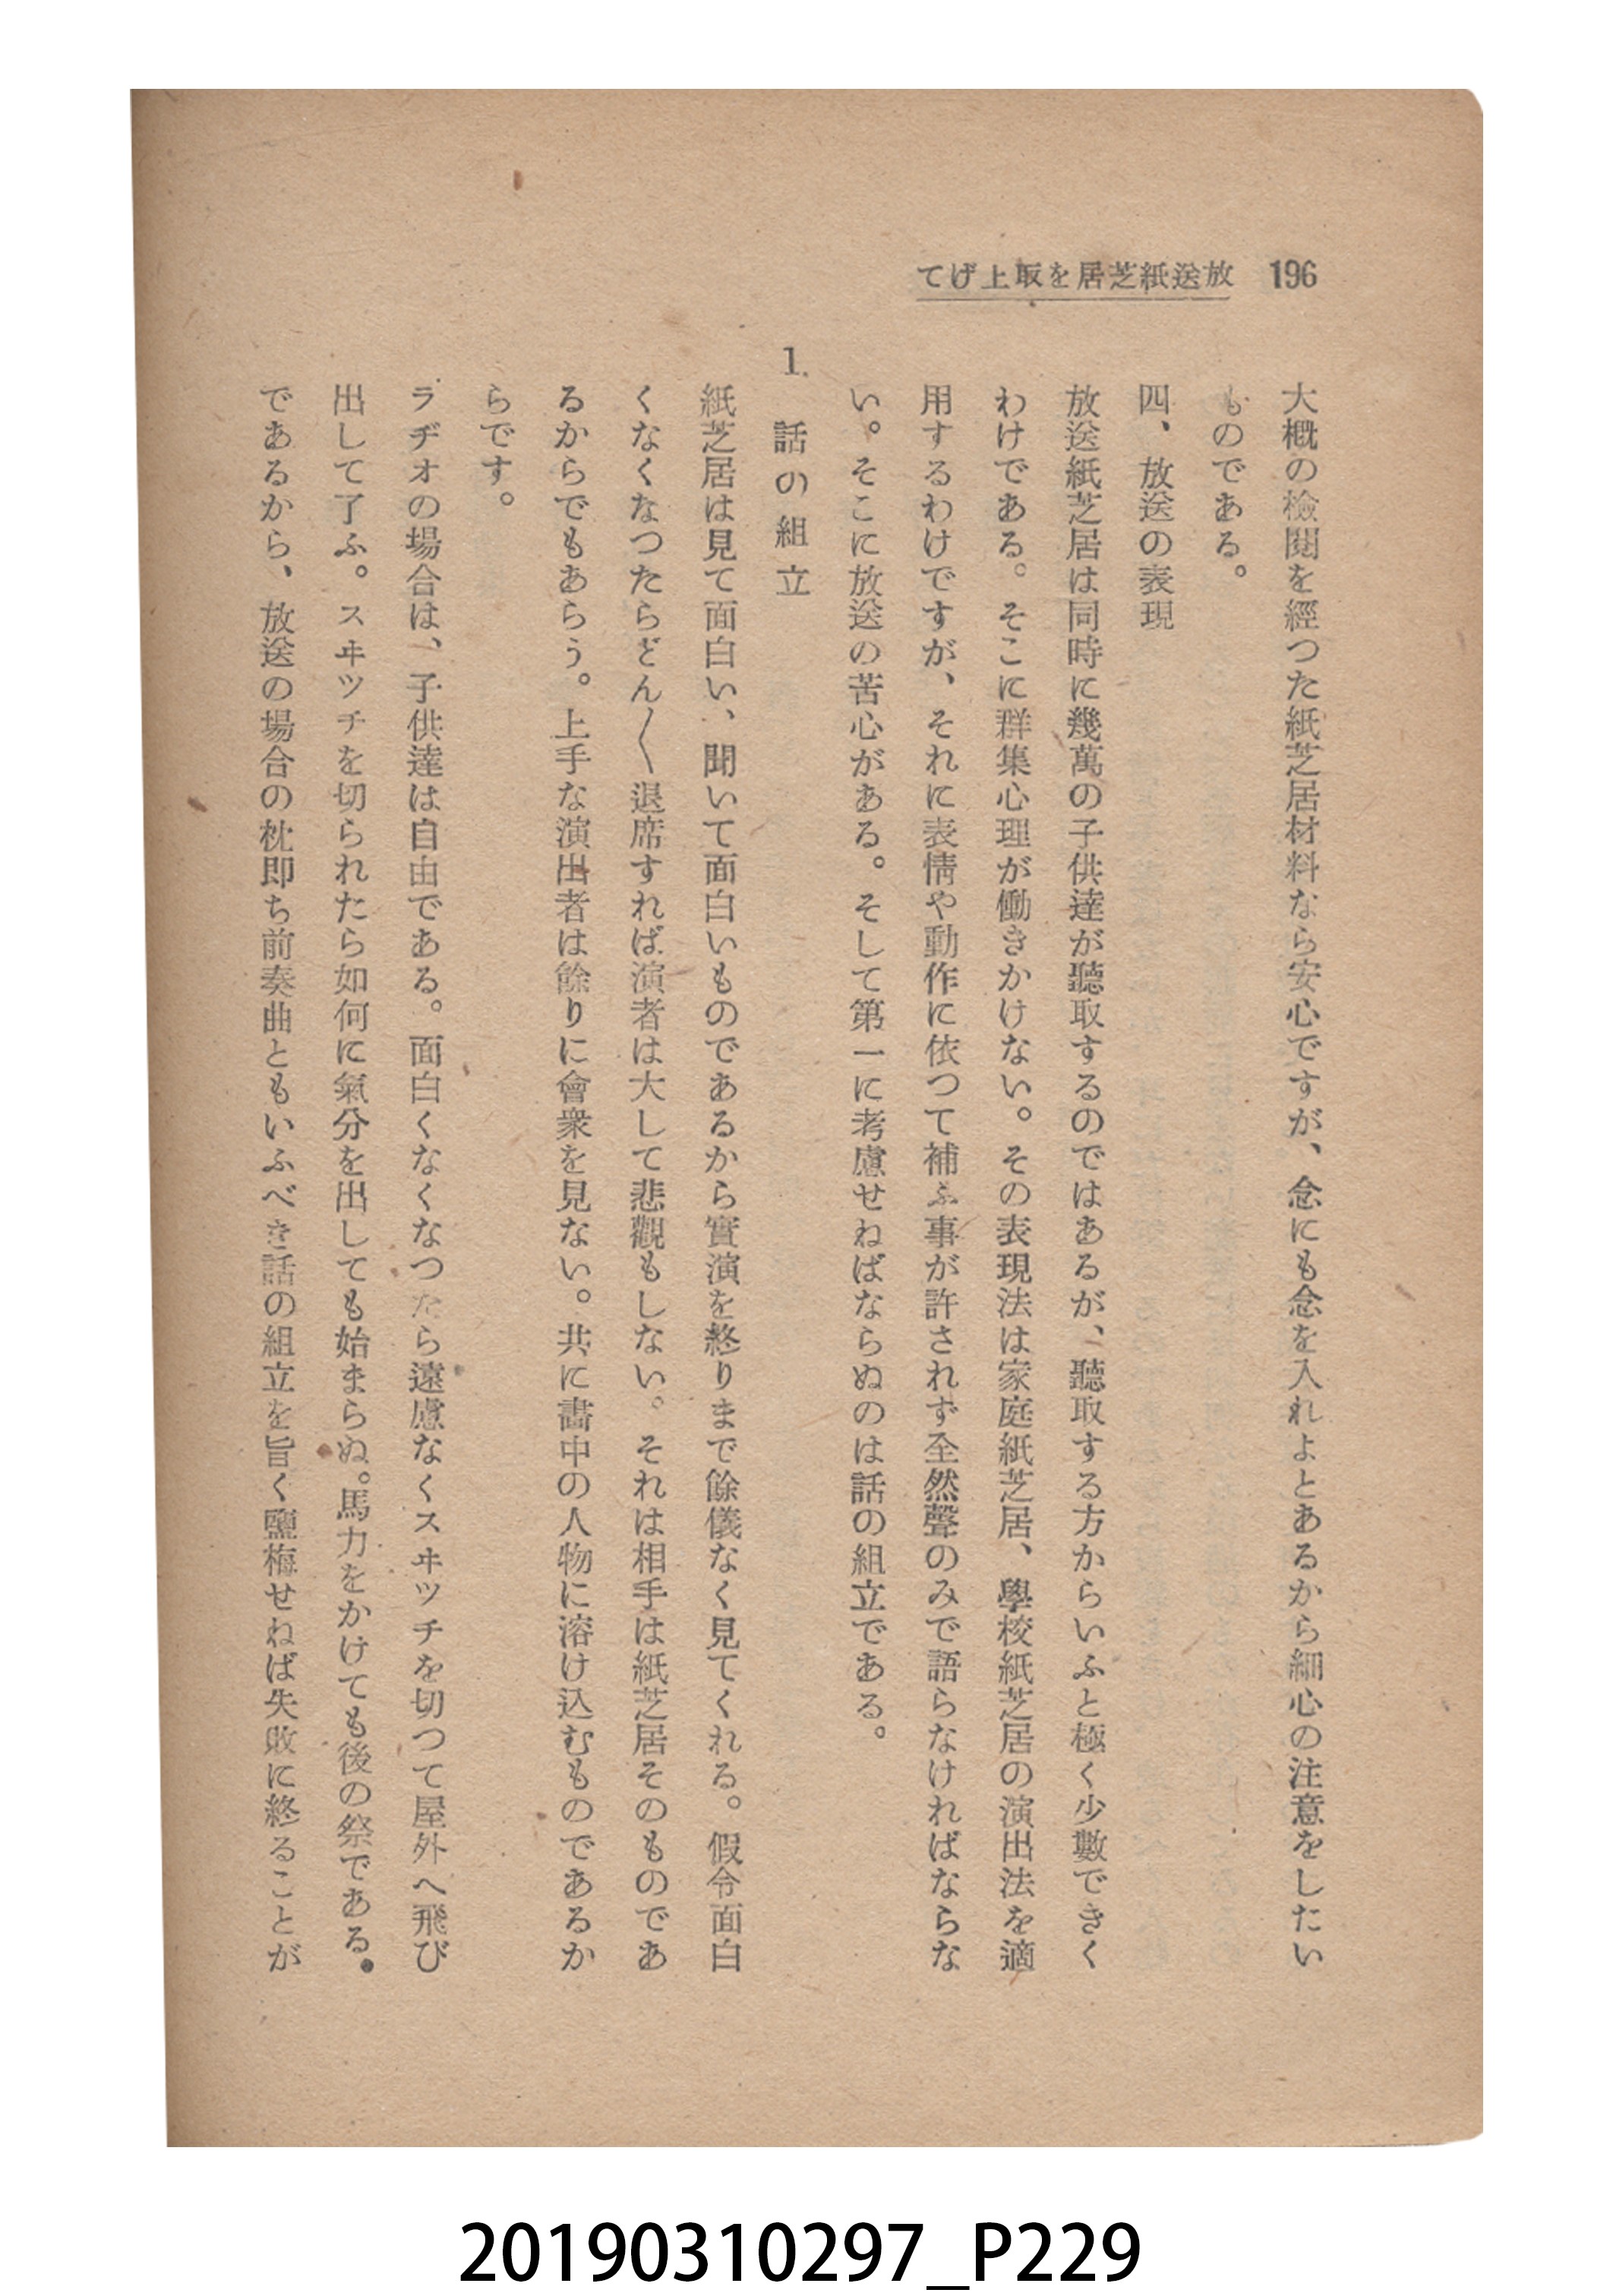 196 放送紙芝居を取上げて
大概の檢閱を經つた紙芝居材料なら安心ですが、念にも念を入れよとあるから細心の注意をしたい
ものである。
四、放送の表現
放送紙芝居は同時に幾萬の子供達が聽取するのではあるが、聽取する方からいふと極く少數できく
わけである。そこに群集心理が働きかけない。その表現法は家庭紙芝居、學校紙芝居の演出法を適
用するわけですが、それに表情や動作に依つて補ふ事が許されず全然聲のみで語らなければならな
い。そこに放送の苦心がある。そして第一に考慮せねばならぬのは話の組立である。
1. 話の組立
紙芝居は見て面白い、聞いて面白いものであるから實演を終りまで餘儀なく見てくれる。假令面白
くなくなつたらどん〱退席すれば演者は大して悲觀もしない。それは相手は紙芝居そのものであ
るからでもあらう。上手な演出者は餘りに會衆を見ない。共に畵中の人物に溶け込むものであるか
らです。
ラヂオの場合は、子供達は自由である。面白くなくなつたら遠慮なくスヰツチを切つて屋外へ飛び
出して了ふ。スヰツチを切られたら如何に氣分を出しても始まらぬ。馬力をかけても後の祭である。
であるから、放送の場合の枕即ち前奏曲ともいふべき話の組立を旨く鹽梅せねば失敗に終ることが
20190310297_P229